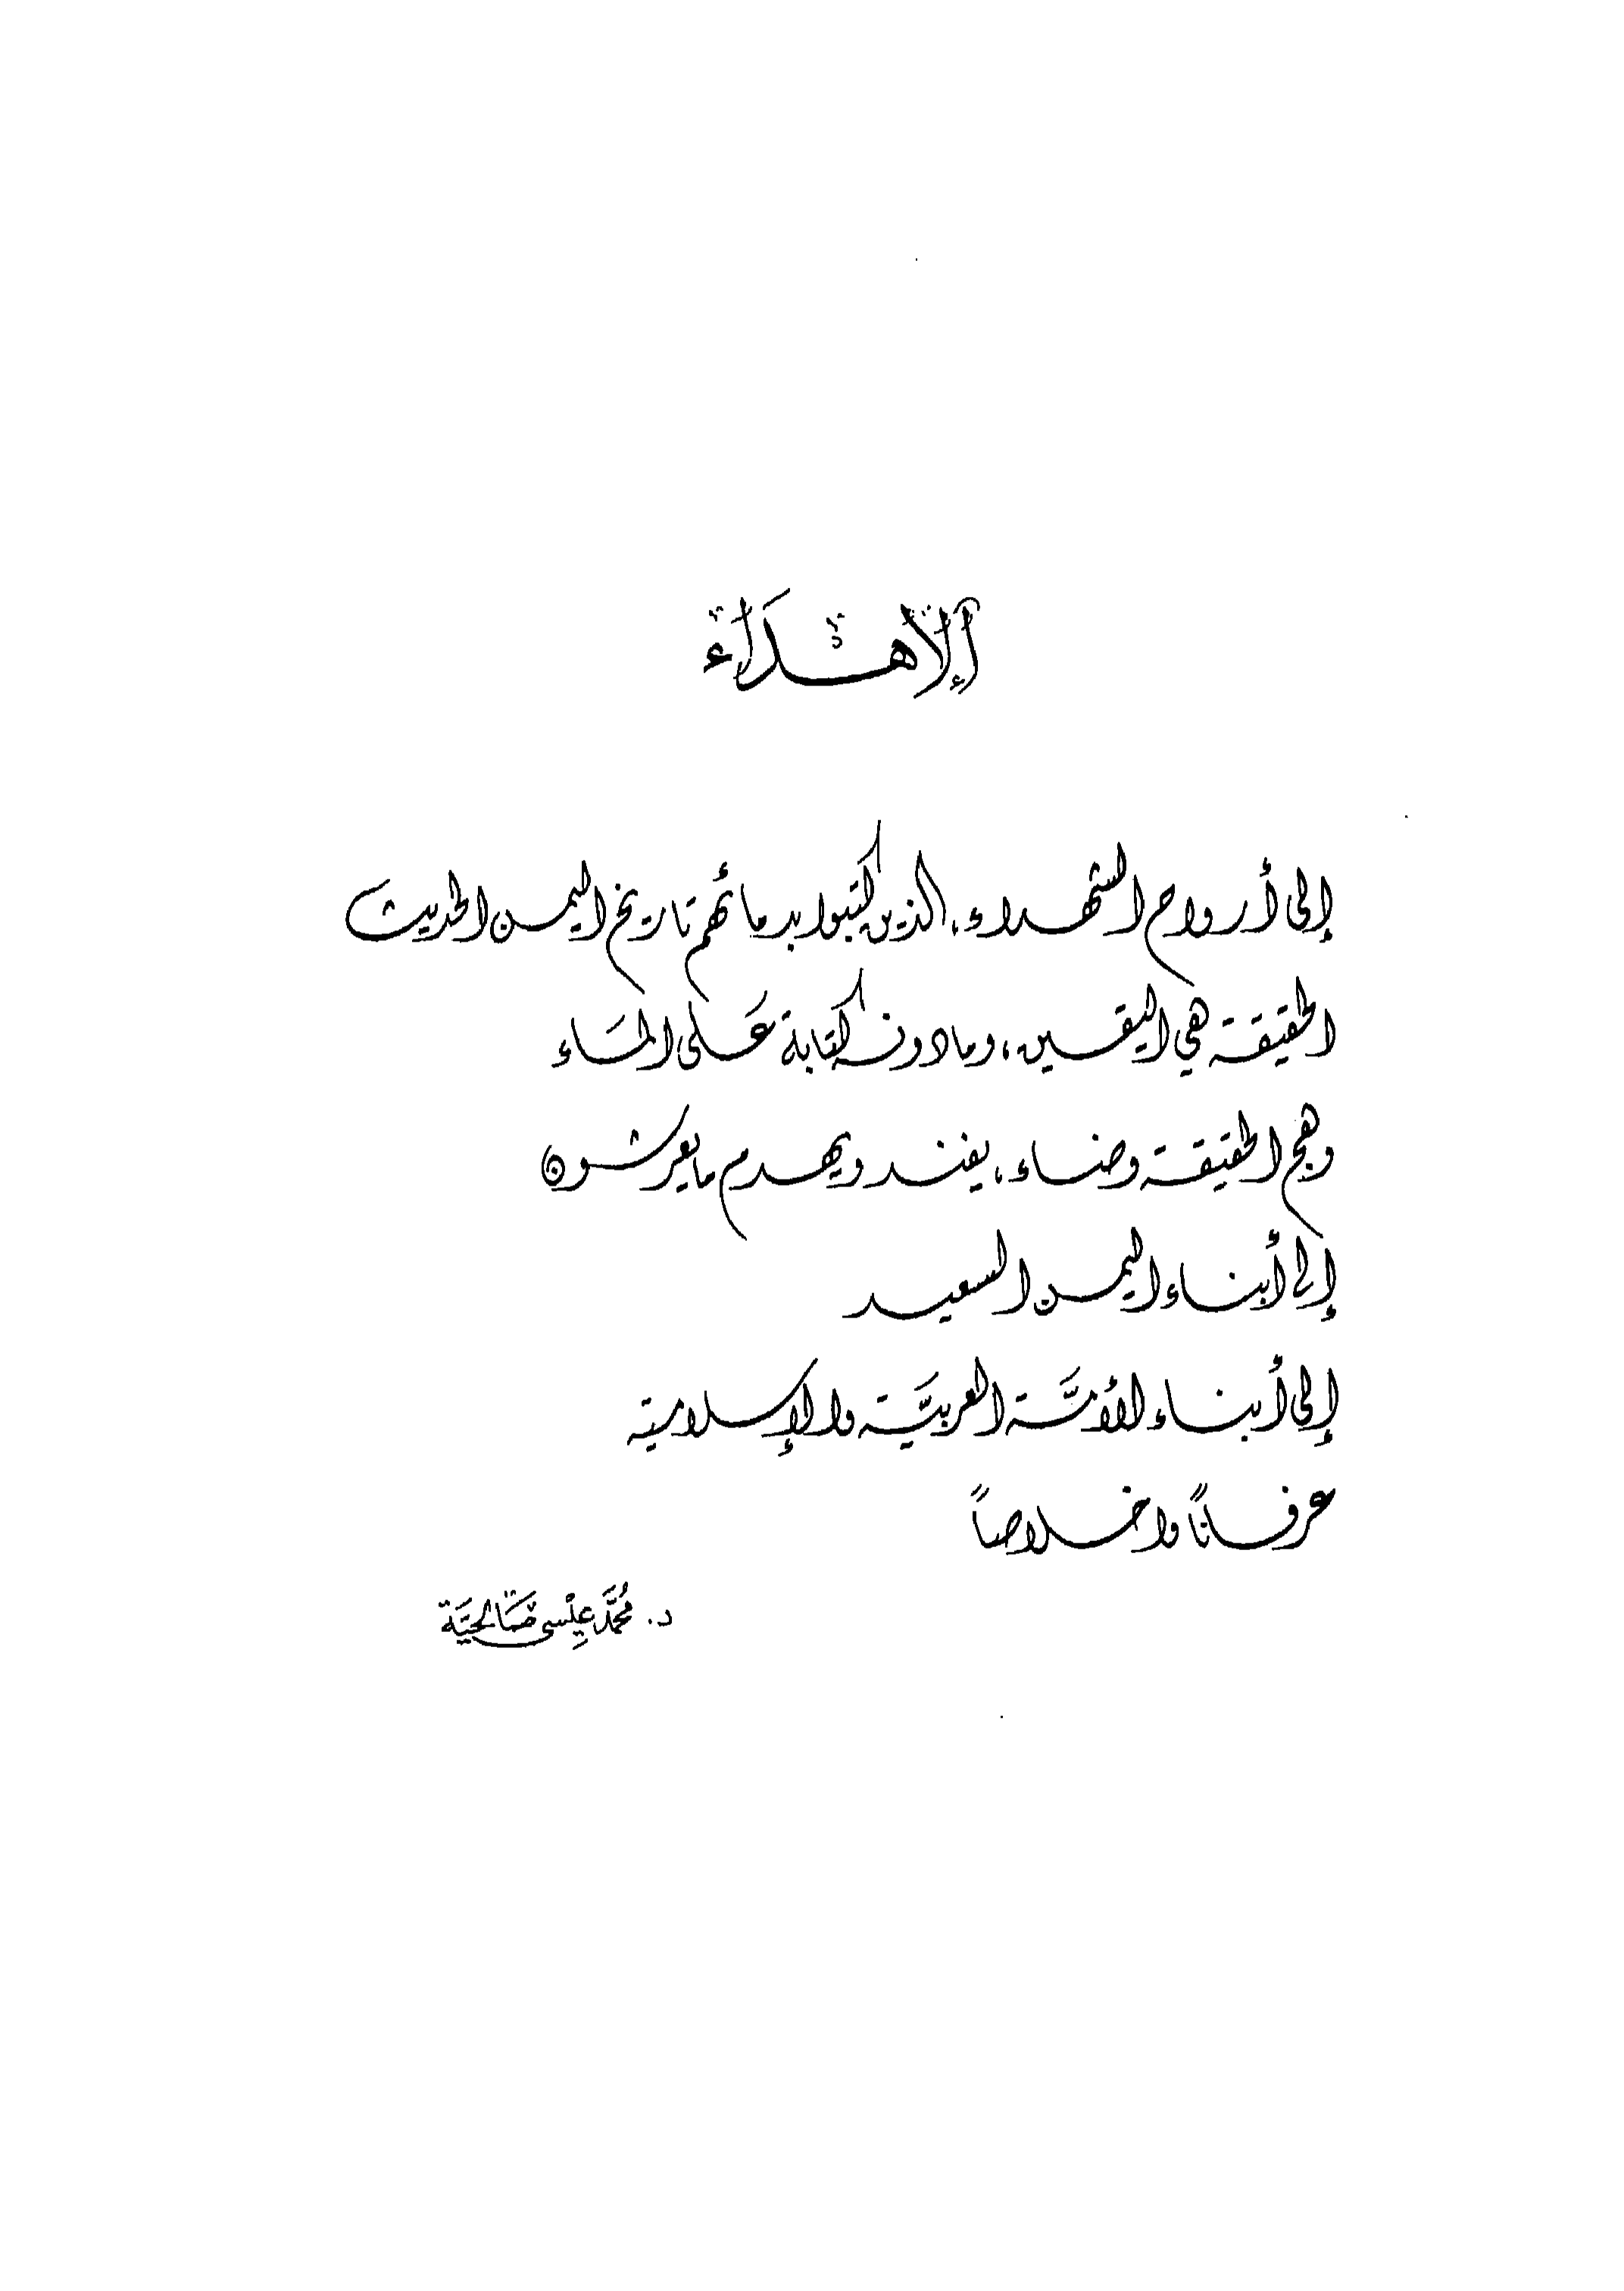 الإهداء
إلى أرواح الشهداء، الذين كتبوا بدمائهم تاريخ اليمن الحديث
الحقيقة هي اليقين، وما دونه كتابة عَلى المَاء
وهج الحقيقة وضاء، يفند ويهدم ما يعرشون
إلى أبناء اليمن السعيد
إلى أبناء الأمَّة العربيَّة والإسلامية
عرفاناً واخلاصاً
د. محمَّد عيْسى صَالحيَّة